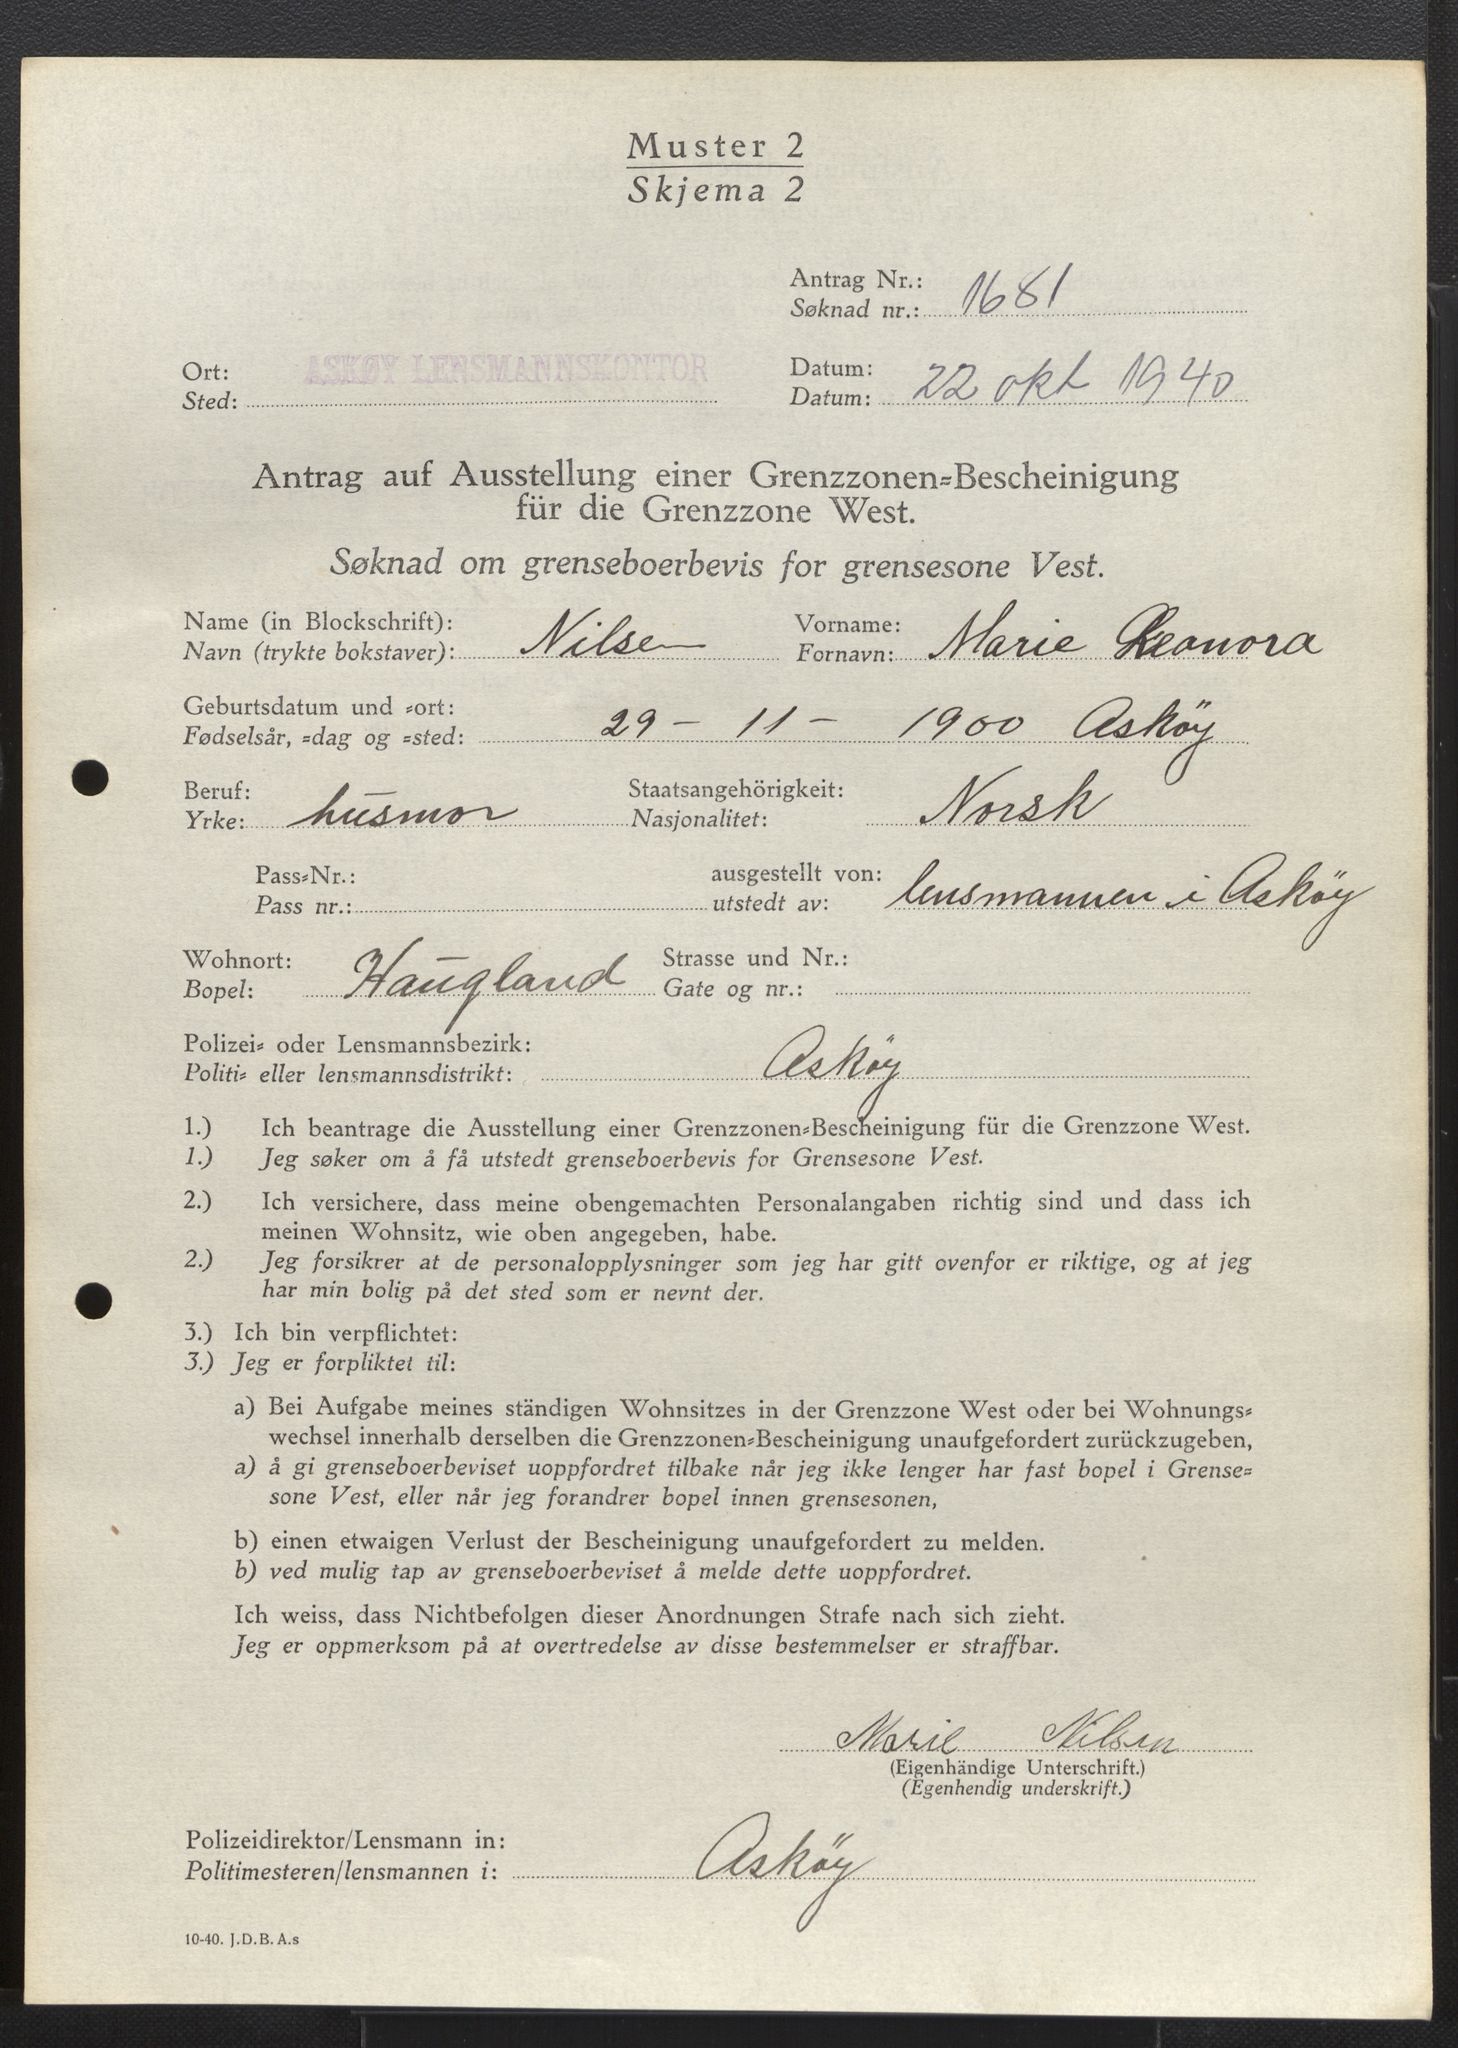 Muster 2
Skjema 2
Antrag Nr.:
Søknad nr.: 1681
Ort: ASKØY LENSMANNSKONTOR
Sted:
Datum:
Datum: 22 okt 1940
Antrag auf Ausstellung einer Grenzzonen-Bescheinigung
für die Grenzzone West.
Søknad om grenseboerbevis for grensesone Vest.
Name (in Blockschrift):
Navn (trykte bokstaver): Nilsen
Vorname:
Fornavn: Marie Leonora
Geburtsdatum und -ort:
Fødselsår, -dag og -sted: 29 - 11 - 1900 Asköy
Beruf:
Yrke: husmor
Staatsangehörigkeit:
Nasjonalitet: Norsk
Pass-Nr.:
Pass nr.:
ausgestellt von:
utstedt av: lensmannen i Asköy
Wohnort:
Bopel: Haugland
Strasse und Nr.:
Gate og nr.:
Polizei- oder Lensmannsbezirk:
Politi- eller lensmannsdistrikt: Asköy
1.) Ich beantrage die Ausstellung einer Grenzzonen-Bescheinigung für die Grenzzone West.
1.) Jeg søker om å få utstedt grenseboerbevis for Grensesone Vest.
2.) Ich versichere, dass meine obengemachten Personalangaben richtig sind und dass ich
meinen Wohnsitz, wie oben angegeben, habe.
2.) Jeg forsikrer at de personalopplysninger som jeg har gitt ovenfor er riktige, og at jeg
har min bolig på det sted som er nevnt der.
3.) Ich bin verpflichtet:
3.) Jeg er forpliktet til:
a) Bei Aufgabe meines ständigen Wohnsitzes in der Grenzzone West oder bei Wohnungs-
wechsel innerhalb derselben die Grenzzonen-Bescheinigung unaufgefordert zurückzugeben,
a) å gi grenseboerbeviset uoppfordret tilbake når jeg ikke lenger har fast bopel i Grense-
sone Vest, eller når jeg forandrer bopel innen grensesonen,
b) einen etwaigen Verlust der Bescheinigung unaufgefordert zu melden.
b) ved mulig tap av grenseboerbeviset å melde dette uoppfordret.
Ich weiss, dass Nichtbefolgen dieser Anordnungen Strafe nach sich zieht.
Jeg er oppmerksom på at overtredelse av disse bestemmelser er straffbar.
Marie Nilsen
(Eigenhändige Unterschrift.)
(Egenhendig underskrift.)
Polizeidirektor/Lensmann in:
Politimesteren/lensmannen i: Asköy
10-40. J.D.B.A.s